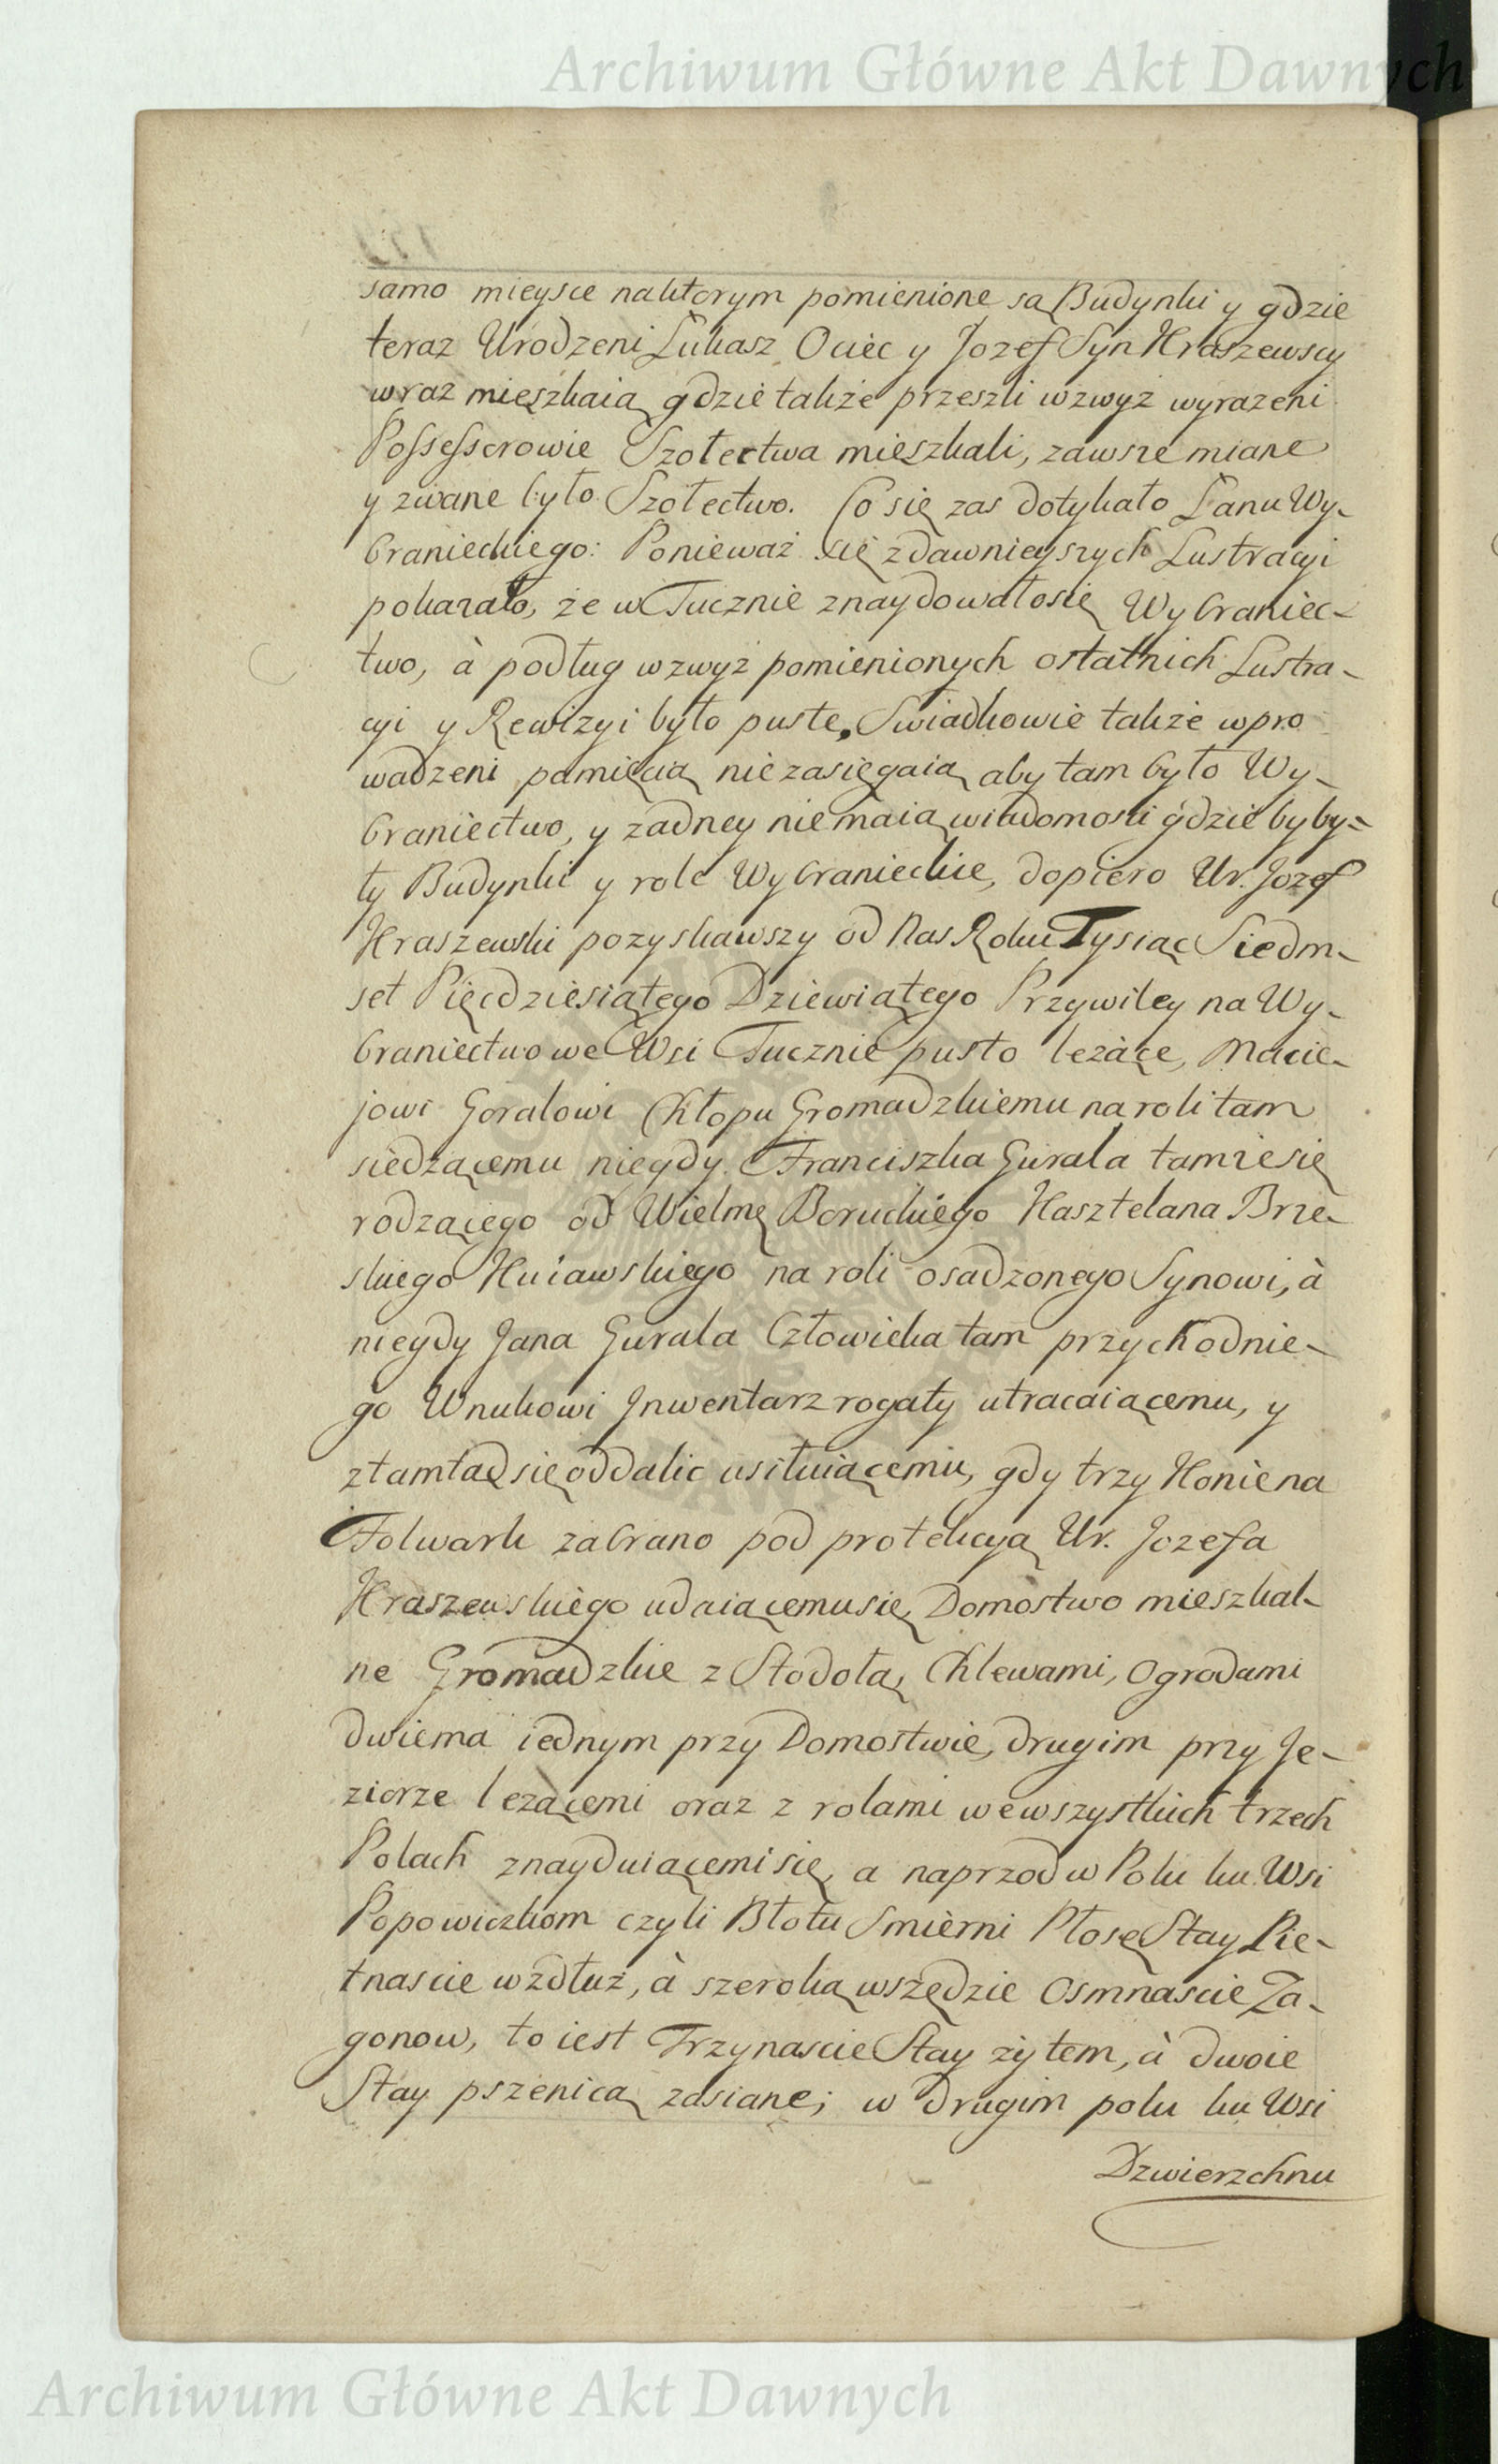 Archiwum Główne Akt Dawnych
samo mieysce naktorym pomienione są Budynki y gdzie
teraz Urodzeni Łukasz Ociec y Jozef Syn Kraszewscy
wraz mieszkaią gdzie także przeszli wzwyż wyrazeni
Possessorowie Szołectwa mieszkali, zawsze miane
y zwane było Szołectwo. Co się zas dotykało Łanu Wy-
branieckiego: Ponieważ się zdawnieyszych Lustracyi
pokazało, że w Tucznie znaydowałosię Wybraniec-
two, à podług wzwyż pomienionych ostatnich Lustra-
cyi y Rewizyi było puste, Swiadkowie także wpro
wadzeni pamięcią niezasięgaią aby tam było Wy-
braniectwo, y zadney niemaią wiadomosti gdzie byby=
ły Budynki y role Wybranieckie, dopiero Ur. Jozef
Kraszewski pozyskawszy od Nas Roku Tysiąc Siedm-
set Pięcdziesiątego Dziewiątego Przywiley na Wy-
braniectwo we Wsi Tucznie pusto leżące, Macie-
jowi Goralowi Chłopu Gromadzkiemu naroli tam
siedzącemu niegdy Franciszka Gurala tamżesię
rodzącego od Wielmę Boruckiego Kasztelana Brze-
skiego Kuiawskiego na roli osadzonego Synowi, à
niegdy Jana Gurala Człowieka tam przychodnie-
go Wnukowi Jnwentarz rogaty utracaiącemu, y
ztamtąd się oddalic usiłuiącemu, gdy trzy Konie na
Folwark zabrano pod protekcyą Ur. Jozefa
Kraszewskiego udaiącemusię, Domostwo mieszkal-
ne Gromadzkie z Stodołą, Chlewami, Ogrodami
dwiema iednym przy Domostwie, drugim przy Je-
ziorze leżącemi oraz z rolami wewszystkich trzech
Polach znayduiącemi się, a naprzod w Polu ku Wsi
Popowiczkom czyli Błotu Smierni Płosę Stay Pie-
tnascie wzdłuż, à szeroką wszędzie Osmnascie Za-
gonow, to iest Trzynascie Stay żytem, à dwoie
Stay pszenicą zasiane; w drugim polu ku Wsi
Dzwierzchnu
Archiwum Główne Akt Dawnych